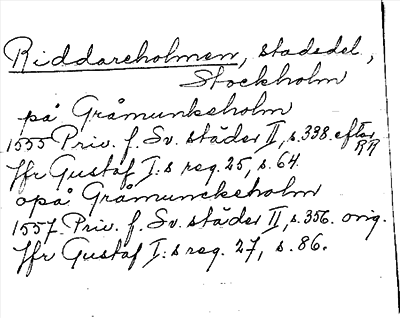 Riddareholmen, stadsdel,
Stockholm
på Gråmunkeholm
1555 Priv. f. Sv. städer II, s. 338. efter RR
Jfr Gustaf I:s reg. 25, s. 64.
opå Gråmunckeholm
1557 Priv. f. Sv. städer II, s. 356. orig.
Jfr Gustaf I:s reg. 27, s. 86.